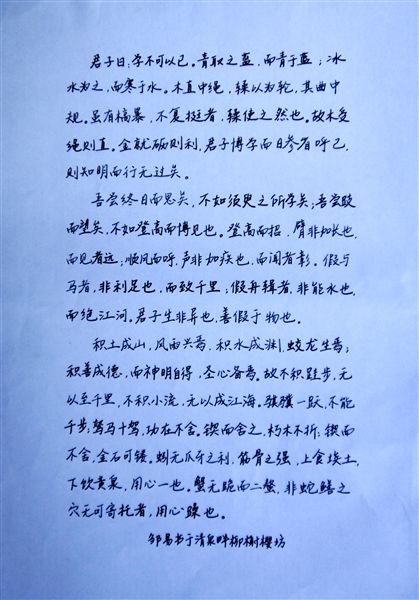 君子曰:学不可以已。青取之蓝,而青于蓝;冰
水为之,而寒于水。木直中绳,𫐓以为轮,其曲中
规。虽有槁暴,不复挺者,𫐓使之然也。故木受
绳则直。金就砺则利,君子博学而日参省乎己,
则知明而行无过矣。
吾尝终日而思矣,不如须臾之所学矣;吾尝跂
而望矣,不如登高而博见也。登高而招,臂非加长也,
而见者远;顺风而呼,声非加疾也,而闻者彰。假与
马者,非利足也,而致千里;假舟楫者,非能水也,
而绝江河。君子生非异也,善假于物也。
积土成山,风雨兴焉,积水成渊,蛟龙生焉;
积善成德,而神明自得,圣心备焉。故不积跬步,无
以至千里,不积小流,无以成江海。骐骥一跃,不能
十步;驽马十驾,功在不舍。锲而舍之,朽木不折;锲而
不舍,金石可镂。蚓无爪牙之利,筋骨之强,上食埃土,
下饮黄泉,用心一也。蟹六跪而二螯,非蛇鳝之
穴无可寄托者,用心躁也。
邹易书于清泉畔柳榭樱坊